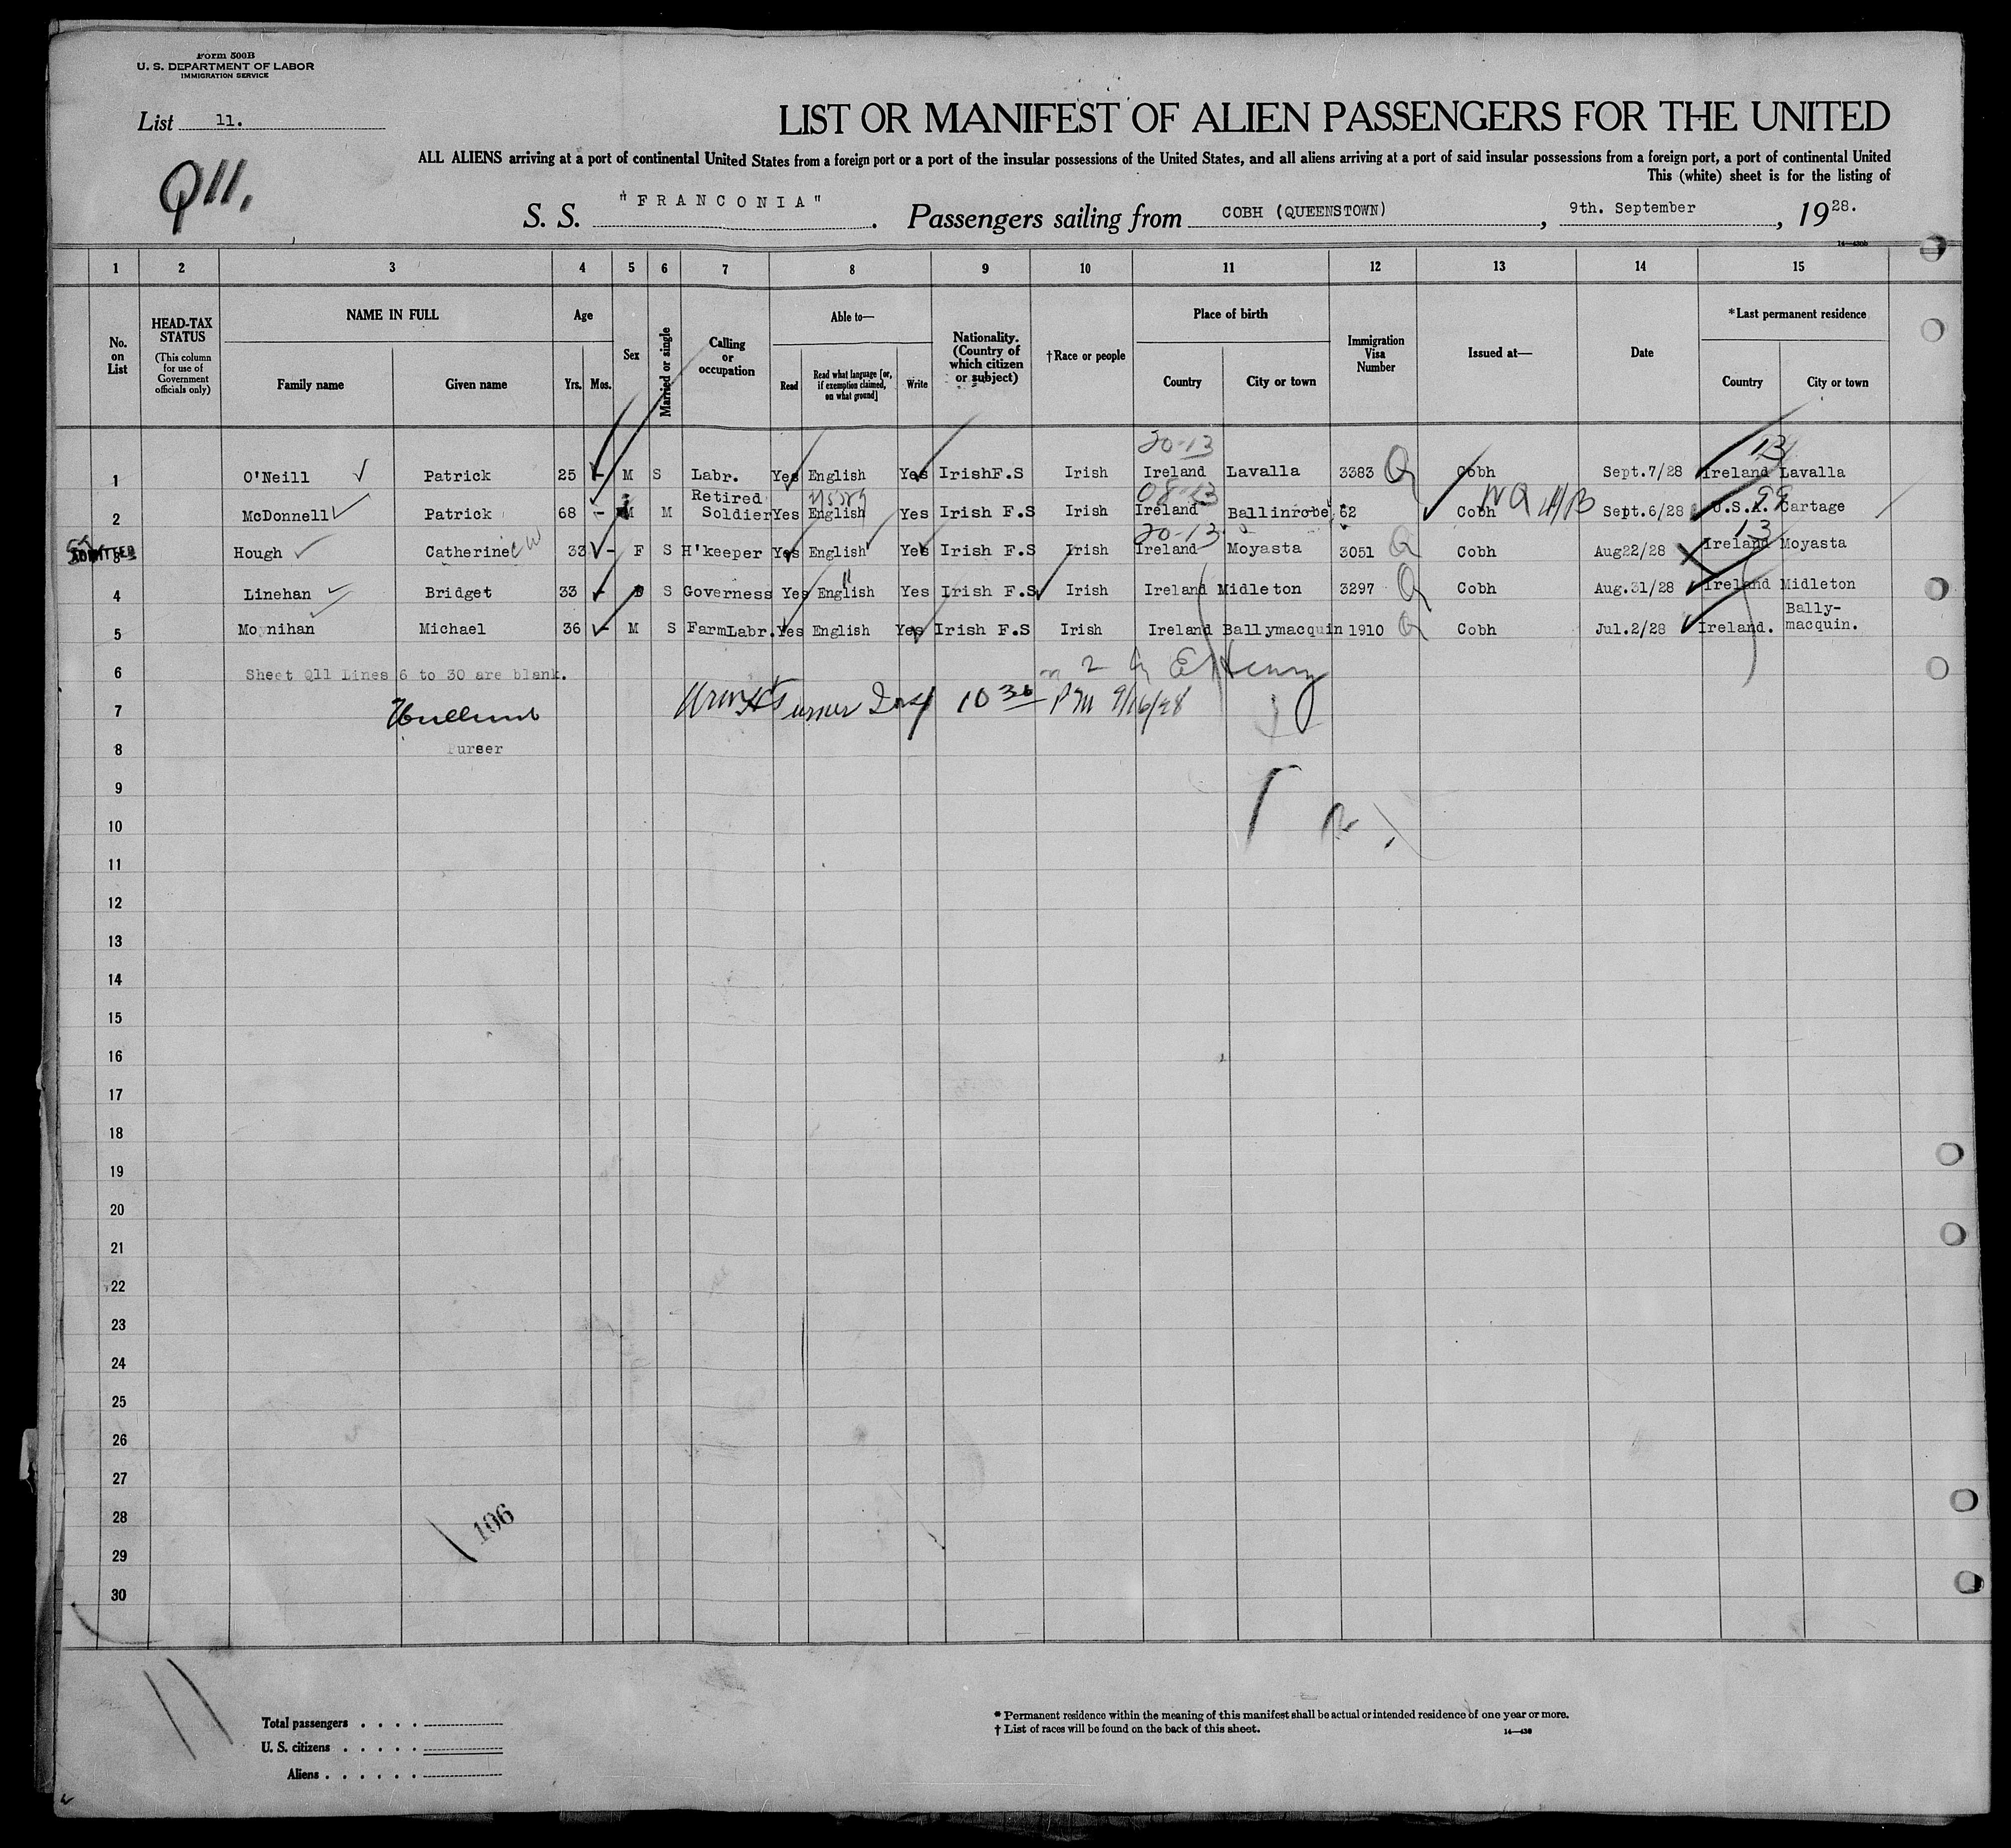 Form 500B
U. S. DEPARTMENT OF LABOR
IMMIGRATION SERVICE
List 11.
Q11.
LIST OR MANIFEST OF ALIEN PASSENGERS FOR THE UNITED
ALL ALIENS arriving at a port of continental United States from a foreign port or a port of the insular possessions of the United States, and all aliens arriving at a port of said insular possessions from a foreign port, a port of continental United
This (white) sheet is for the listing of
S. S. "FRANCONIA". Passengers sailing from COBH (QUEENSTOWN), 9th. September, 1928.
14-430b
1 2 3 4 5 6 7 8 9 10 11 12 13 14 15
No. on List
HEAD-TAX STATUS
(This column for use of Government officials only)
NAME IN FULL
Family name Given name
Age
Yrs. Mos.
Sex
Married or single
Calling or occupation
Able to—
Read Read what language [or, if exemption claimed, on what ground] Write
Nationality. (Country of which citizen or subject)
†Race or people
Place of birth
Country City or town
Immigration Visa Number
Issued at—
Date
*Last permanent residence
Country City or town
20-13 13
1 O'Neill Patrick 25 - M S Labr. Yes English Yes IrishF.S Irish Ireland Lavalla 3383 Q Cobh Sept.7/28 Ireland Lavalla
2 McDonnell Patrick 68 - M M Retired Soldier Yes English Yes Irish F.S Irish Ireland Ballinrobe 62 Cobh NQ Sept.6/28 U.S.A. 99 Cartage
20-13 13
ADMITTED 3 Hough Catherine 33 - F S H'keeper Yes English Yes Irish F.S Irish Ireland Moyasta 3051 Q Cobh Aug22/28 Ireland Moyasta
4 Linehan Bridget 33 - S Governess Yes English Yes Irish F.S Irish Ireland Midleton 3297 Q Cobh Aug.31/28 Ireland Midleton
5 Moynihan Michael 36 - M S FarmLabr. Yes English Yes Irish F.S Irish Ireland Ballymacquin 1910 Q Cobh Jul.2/28 Ireland. Bally-macquin.
6 Sheet Q11 Lines 6 to 30 are blank.
7 Turner 10 30 PM 9/16/28
8 Purser
9
10
11
12
13
14
15
16
17
18
19
20
21
22
23
24
25
26
27
28 106
29
30
11
Total passengers
U. S. citizens
Aliens
* Permanent residence within the meaning of this manifest shall be actual or intended residence of one year or more.
† List of races will be found on the back of this sheet.
14-430